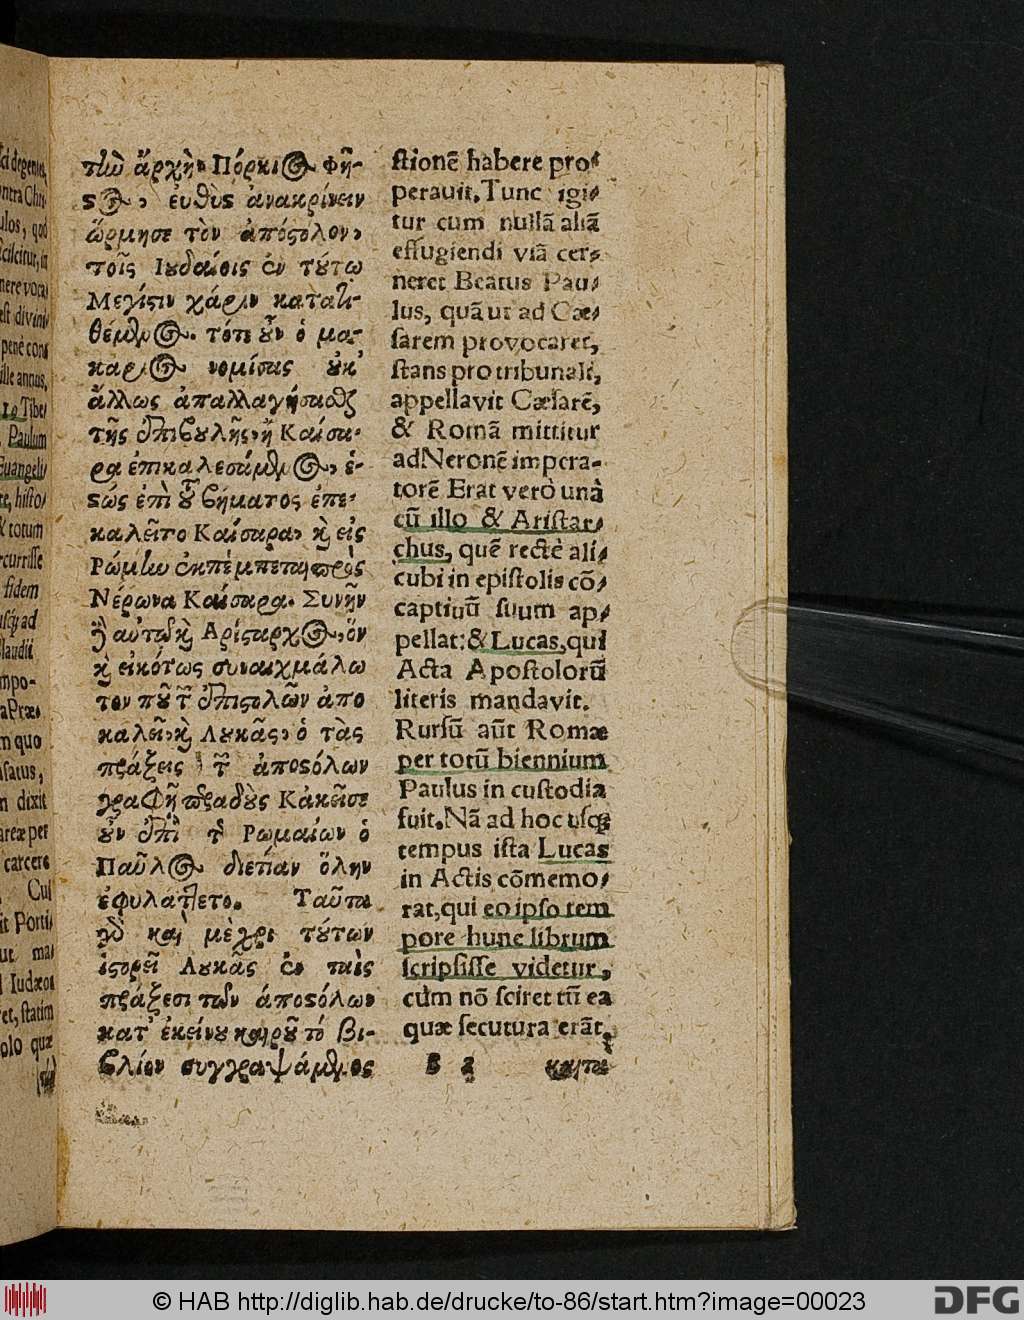 τὴν ἀρχὴν Πόρκιος Φῆ-
ςος, εὐθὺς ἀνακρίνειν
ὥρμησε τὸν ἀπόςολον,
τοῖς Ιουδαίοις ἐν τούτῳ
Μεγίςην χάριν κατατι-
θέμενος. τότε οὖν ὁ μα-
κάριος νομίσας οὐκ
ἄλλως ἀπαλλαγήσεσθαι
τῆς ἐπιβουλῆς, ἢ Καίσα-
ρα ἐπικαλεσάμενος, ἑ-
ςὼς ἐπὶ τοῦ βήματος ἐπε-
καλεῖτο Καίσαρα, καὶ εἰς
Ρώμην ἐκπέμπεται πρὸς
Νέρωνα Καίσαρα. Συνῆν
δὲ αὐτῷ καὶ Αρίςαρχος, ὅν
καὶ εἰκότως συναιχμάλω
τον που τῶν ἐπιςολῶν ἀπο
καλεῖ, καὶ Λουκᾶς, ὁ τὰς
πράξεις τῶν ἀποςόλων
γραφῇ παραδούς Κἀκεῖσε
οὖν ἐπὶ τῆς Ρωμαίων ὁ
Παῦλος διετίαν ὅλην
ἐφυλάττετο. Ταῦτα
δὲ καὶ μέχρι τούτων
ἱςορεῖ Λουκᾶς ἐν ταῖς
πράξεσι τῶν ἀποςόλων
κατ᾽ ἐκείνου καιροῦ τὸ βι-
βλίον συγγραψάμενος
ſtionē habere pro⸗
peravit. Tunc igi⸗
tur cum nullā aliā
effugiendi viā cer⸗
neret Beatus Pau⸗
lus, quā ut ad Cæ⸗
ſarem provocaret,
ſtans pro tribunali,
appellavit Cæſarē,
& Romā mittitur
ad Neronē impera-
torē Erat verò unà
cū illo & Ariſtar⸗
chus, quē rectè ali⸗
cubi in epiſtolis cō⸗
captivū ſuum ap⸗
pellat: & Lucas, qui
Acta Apoſtolorū
literis mandavit.
Rurſū aūt Romæ
per totū biennium
Paulus in cuſtodia
fuit. Nā ad hoc uſq;
tempus iſta Lucas
in Actis cōmemo⸗
rat, qui eo ipſo tem
pore hunc librum
ſcripſiſſe videtur,
cùm nō ſciret tū ea
quæ ſecutura erāt.
B 2 καὶ τὰ
© HAB http://diglib.hab.de/drucke/to-86/start.htm?image=00023
DFG